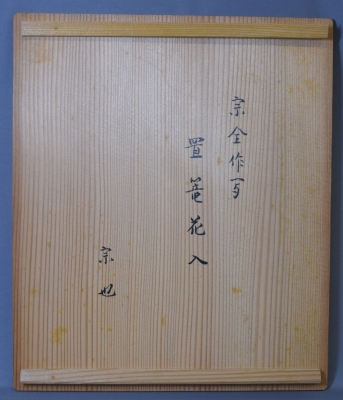 宗全作写
置篭花入
宗也